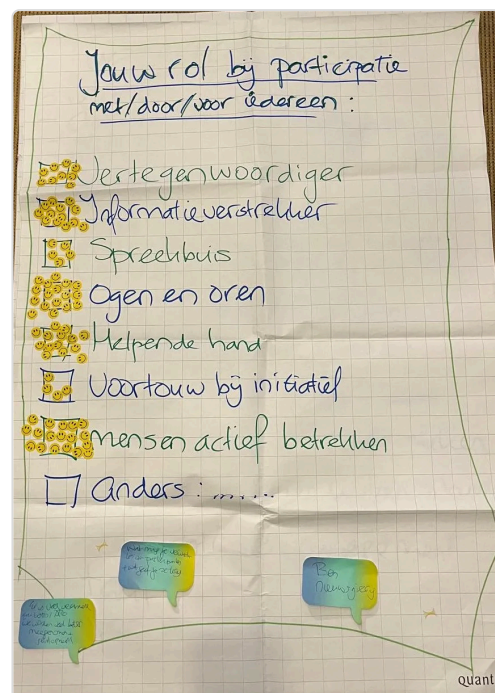 Jouw rol bij participatie
met/door/voor iedereen :
Vertegenwoordiger
Informatieverstrekker
Spreekbuis
Ogen en oren
Helpende hand
Voortouw bij initiatief
mensen actief betrekken
Anders : .......
Ben
nieuwsgierig
quant